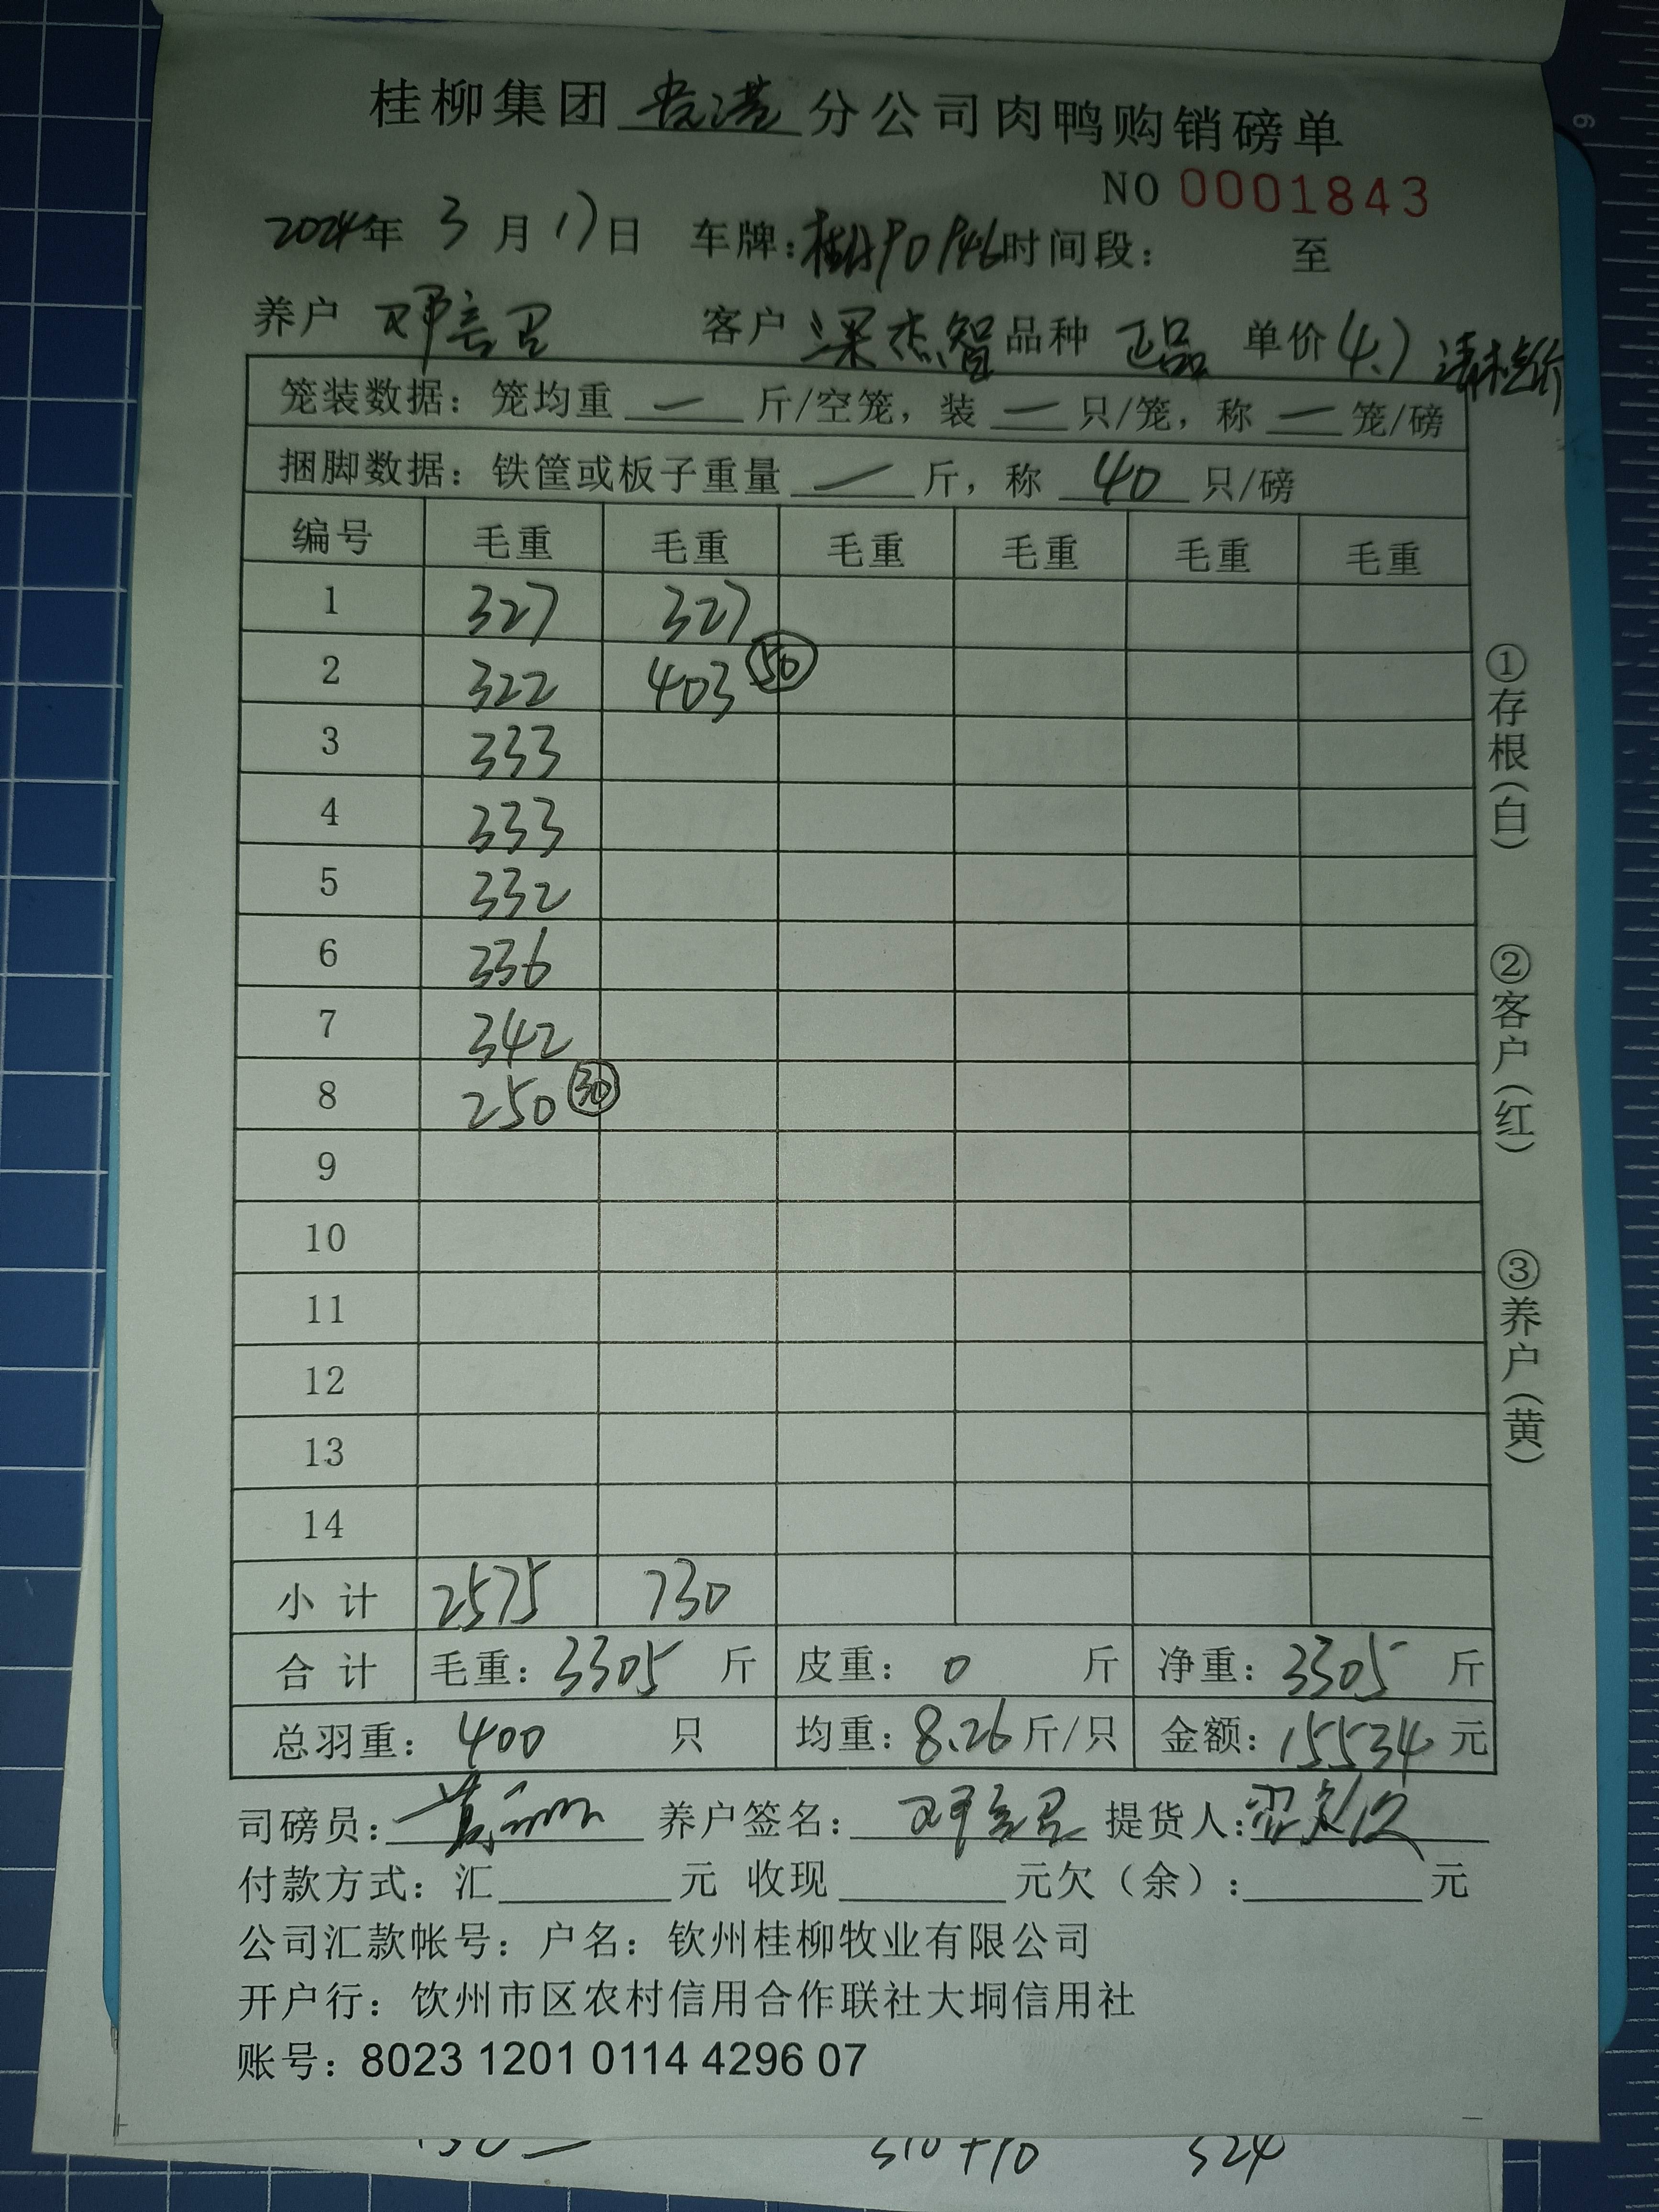 桂柳集团贵港分公司肉鸭购销磅单
NO 0001843
2024年 3月17日 车牌: 时间段: 至
养户 邓言罡 客户 梁杰智 品种 正品 单价 4.7
笼装数据: 笼均重 — 斤/空笼, 装 — 只/笼, 称 — 笼/磅
捆脚数据: 铁筐或板子重量 — 斤, 称 40 只/磅
编号 毛重 毛重 毛重 毛重 毛重 毛重
1 327 327
2 322 403 50
3 333
4 333
5 332
6 336
7 342
8 250 30
9
10
11
12
13
14
小计 2575 730
合计 毛重: 3305 斤 皮重: 0 斤 净重: 3305 斤
总羽重: 400 只 均重: 8.26 斤/只 金额: 15534 元
司磅员: 养户签名: 提货人:
付款方式: 汇 元 收现 元欠(余): 元
公司汇款帐号: 户名: 钦州桂柳牧业有限公司
开户行: 钦州市区农村信用合作联社大垌信用社
账号: 8023 1201 0114 4296 07
①存根(白)
②客户(红)
③养户(黄)